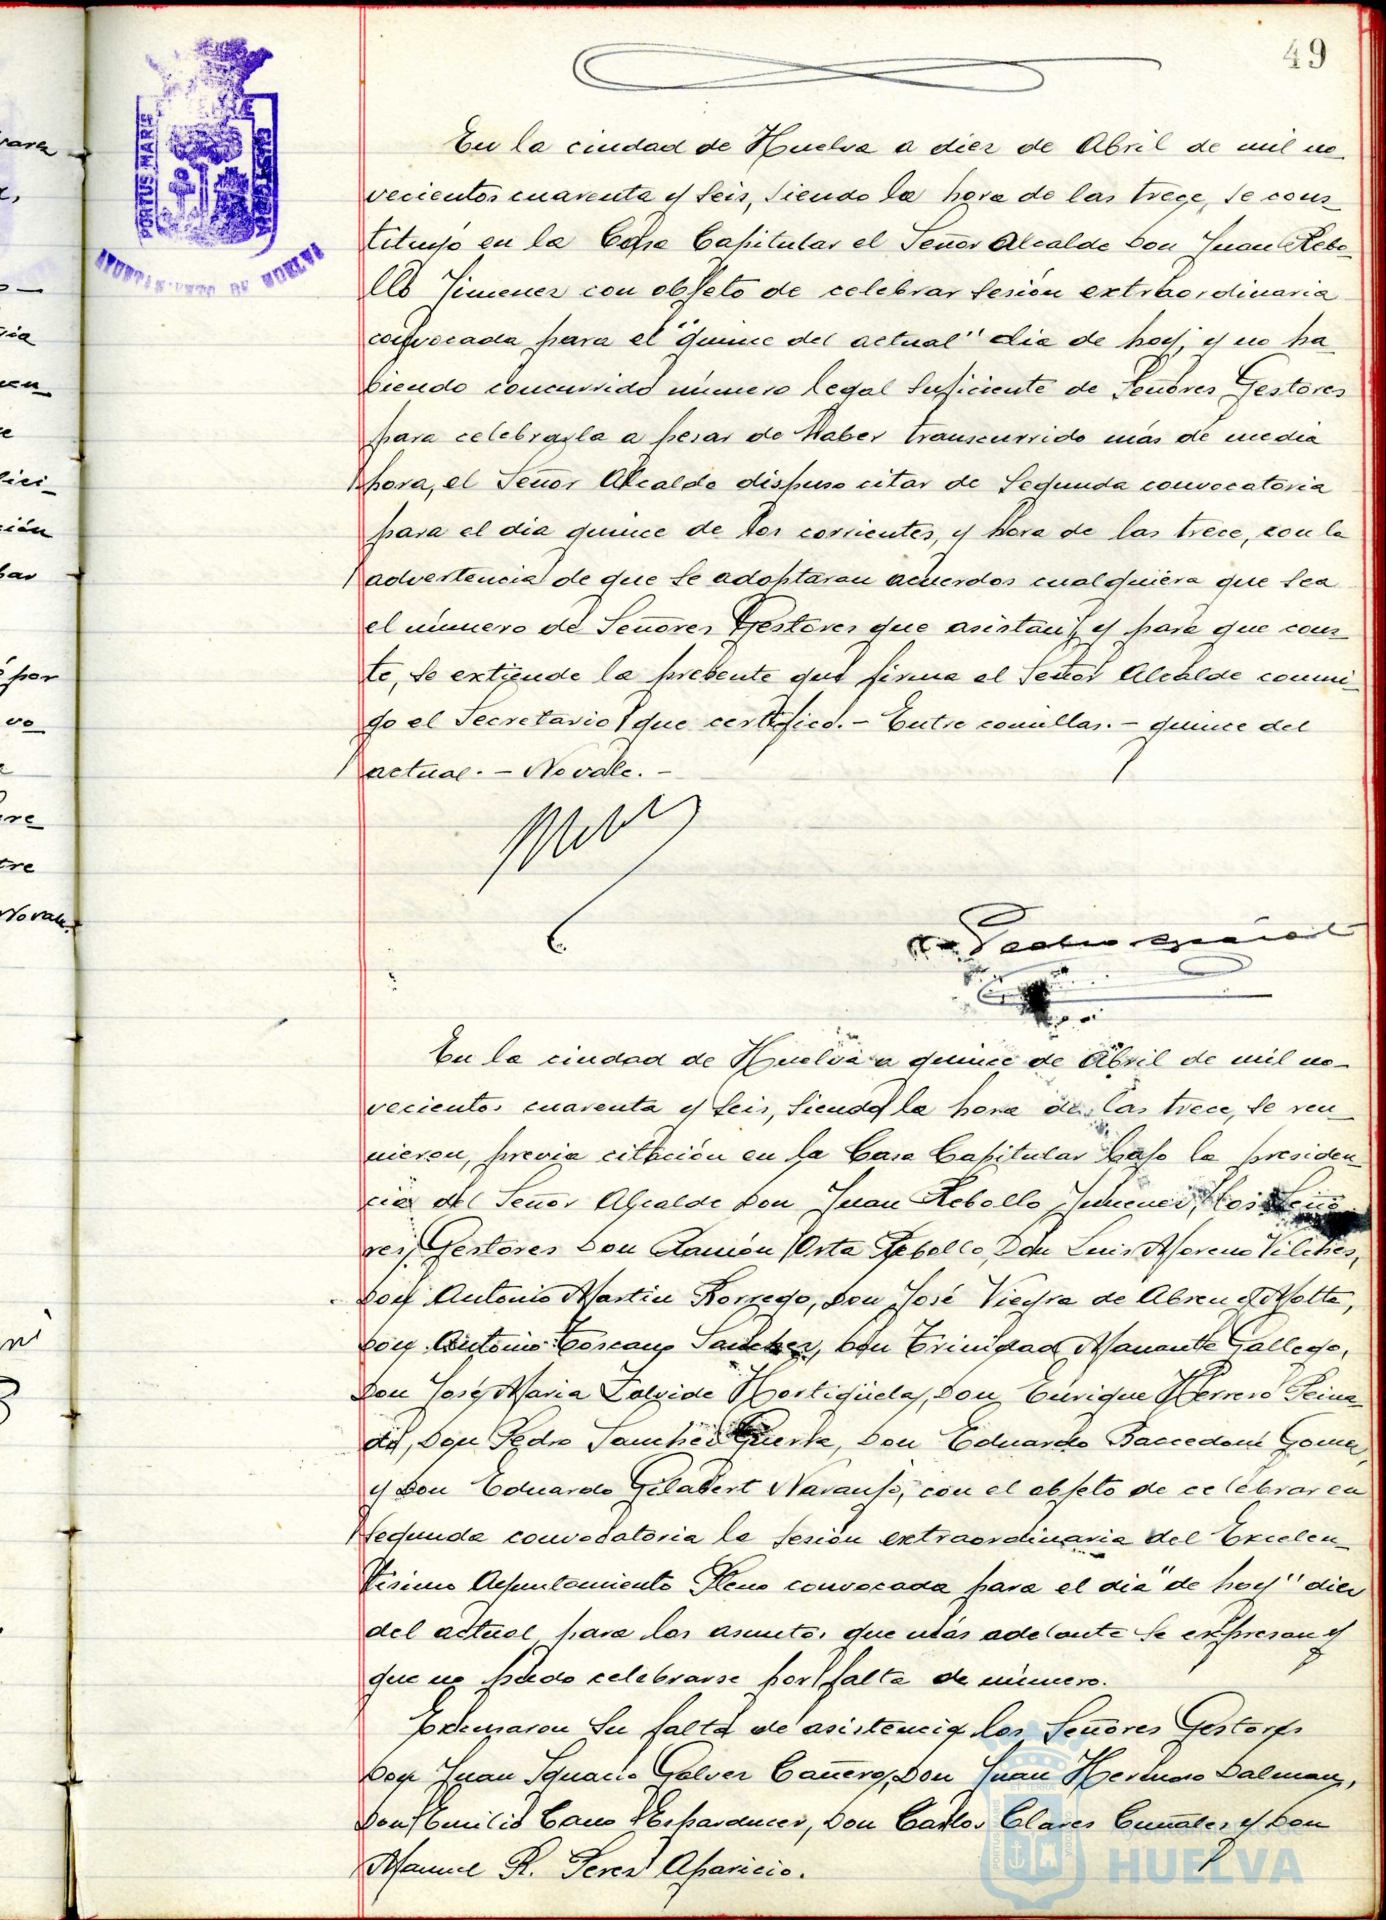 49
PORTUS MARIS
ET TERRAE
CUSTODIA
AYUNTAMIENTO DE HUELVA
En la ciudad de Huelva a diez de Abril de mil no-
vecientos cuarenta y seis, siendo la hora de las trece, se cons-
tituyó en la Casa Capitular el Señor Alcalde Don Juan Rebo-
llo Jimenez con objeto de celebrar sesión extraordinaria
convocada para el "quince del actual" dia de hoy, y no ha-
biendo concurrido número legal suficiente de Señores Gestores
para celebrarla a pesar de haber transcurrido más de media
hora, el Señor Alcalde dispuso citar de segunda convocatoria
para el dia quince de los corrientes, y hora de las trece, con la
advertencia de que se adoptaran acuerdos cualquiera que sea
el número de Señores Gestores que asistan, y para que cons-
te, se extiende la presente que firma el Señor Alcalde conmi-
go el Secretario que certifico.- Entre comillas.- quince del
actual.- No vale.-
En la ciudad de Huelva a quince de Abril de mil no-
vecientos cuarenta y seis, siendo la hora de las trece, se reu-
nieron, previa citación en la Casa Capitular bajo la presiden-
cia del Señor Alcalde Don Juan Rebollo Jimenez, los Seño-
res Gestores Don Ramón Orta Rebollo, Don Luis Moreno Vilches,
Don Antonio Martin Borrego, Don José Vieyra de Abreu y Motta,
Don Antonio Toscano Sanchez, Don Trinidad Manante Gallego,
Don José Maria Zalvide Hortigüela, Don Enrique Herrero Peina-
do, Don Pedro Sanchez Guerra, Don Eduardo Baccedoni Gomez,
y Don Eduardo Gilabert Naranjo, con el objeto de celebrar en
segunda convocatoria la sesión extraordinaria del Excelen-
tisimo Ayuntamiento Pleno convocada para el dia "de hoy" diez
del actual para los asuntos que más adelante se expresan y
que no pudo celebrarse por falta de número.
Excusaron su falta de asistencia los Señores Gestores
Don Juan Ignacio Galvez Cañero, Don Juan Hermoso Dalman,
Don Emilio Cano Esparducer, Don Carlos Clares Cuñales y Don
Manuel R. Perez Aparicio.
Ayuntamiento de
HUELVA